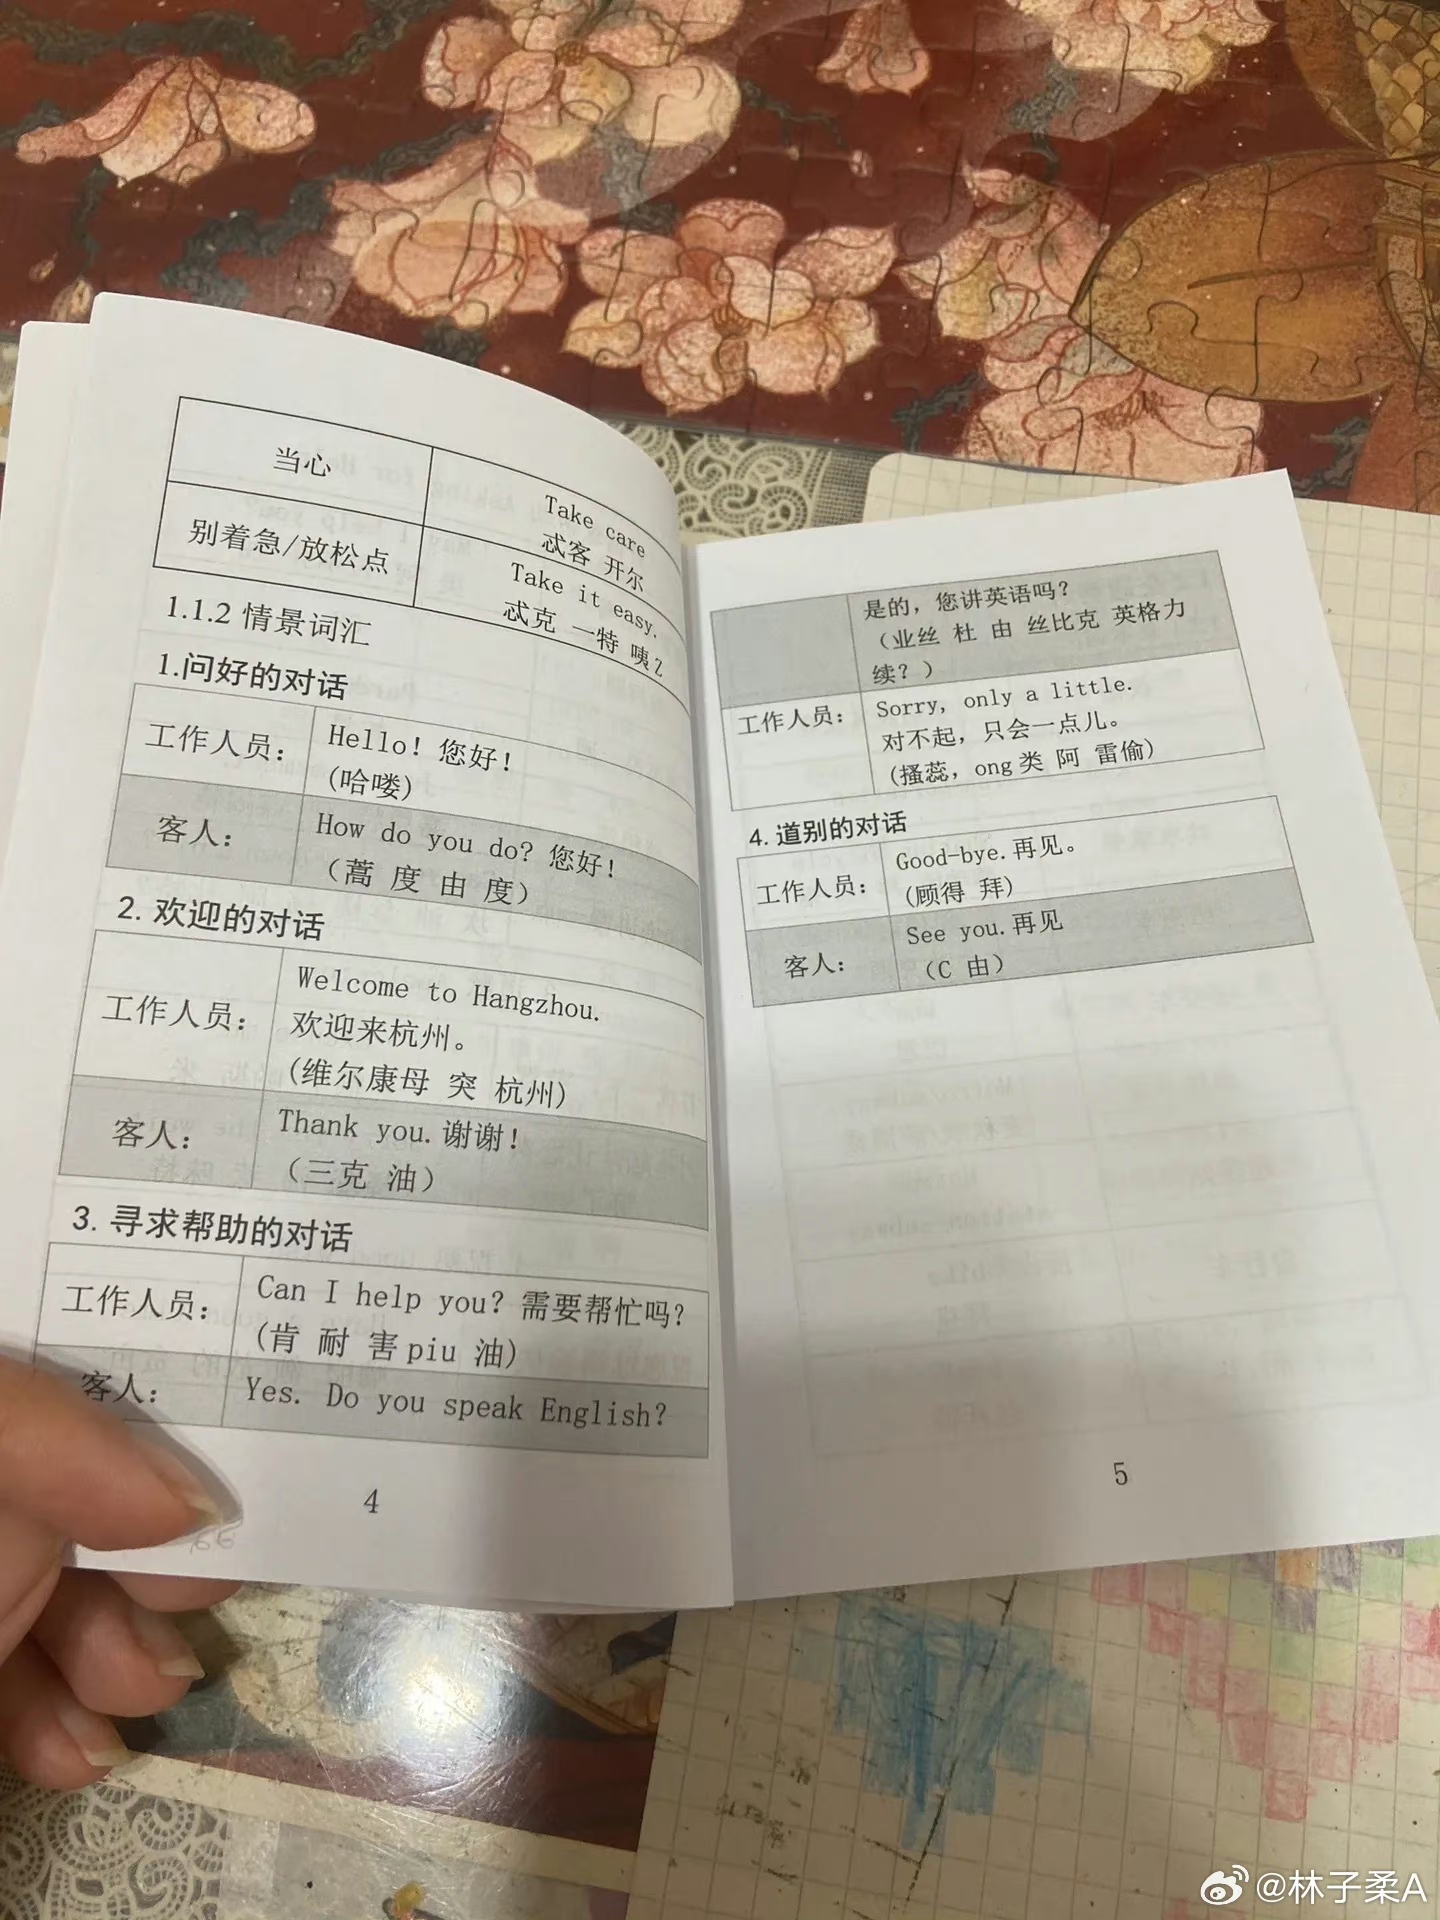 当心
Take care
忒客 开尔
别着急/放松点
Take it easy.
忒克 一特 咦Z
1.1.2 情景词汇
1.问好的对话
工作人员：
Hello! 您好！
(哈喽)
客人：
How do you do? 您好！
（蒿 度 由 度）
2. 欢迎的对话
工作人员：
Welcome to Hangzhou.
欢迎来杭州。
(维尔康母 突 杭州)
客人：
Thank you. 谢谢！
（三克 油）
3. 寻求帮助的对话
工作人员：
Can I help you? 需要帮忙吗？
(肯 耐 害piu 油)
客人：
Yes. Do you speak English?
4
是的，您讲英语吗？
（业丝 杜 由 丝比克 英格力
续？）
工作人员：
Sorry, only a little.
对不起，只会一点儿。
(搔蕊，ong类 阿 雷偷)
4. 道别的对话
工作人员：
Good-bye. 再见。
(顾得 拜)
客人：
See you. 再见
（C 由）
5
@林子柔A